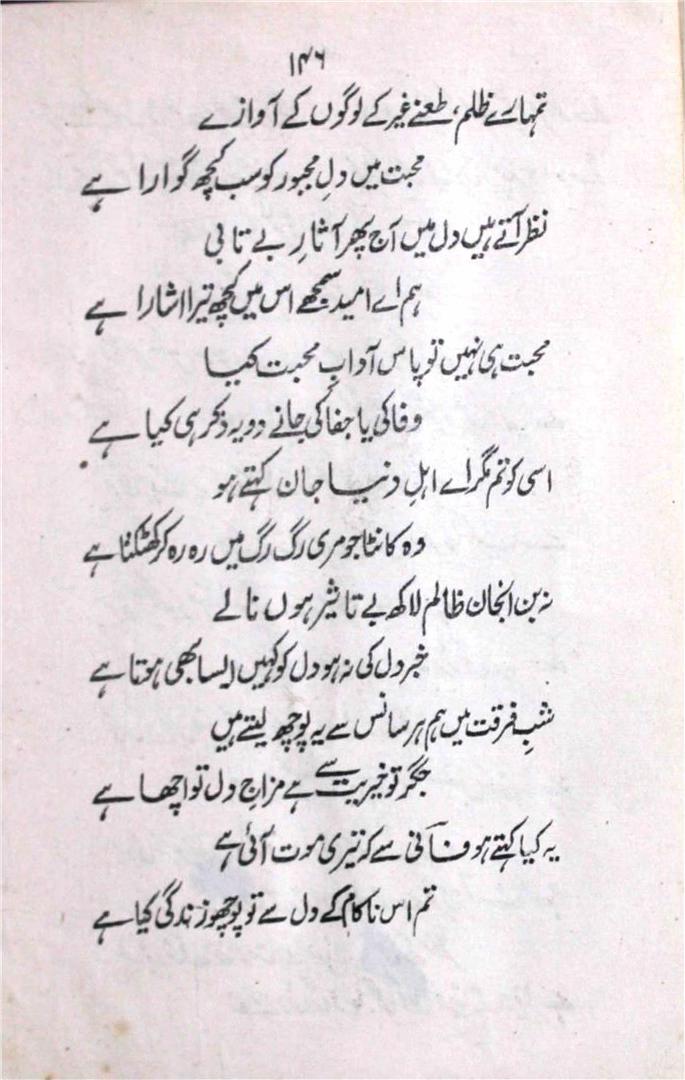 ۱۴۶
تمہارے ظلم، طعنے غیر کے لوگوں کے آوازے
محبت میں دلِ مجبور کو سب کچھ گوارا ہے
نظر آتے ہیں دل میں آج پھر آثارِ بے تابی
ہم اے امید سمجھے اس میں کچھ تیرا اشارا ہے
محبت ہی نہیں تو پاس آدابِ محبت کیا
وفا کی یا جفا کی جانے دو یہ ذکر ہی کیا ہے
اسی کو تم مگر اے اہلِ دنیا جان کہتے ہو
وہ کانٹا جو مری رگ رگ میں رہ رہ کر کھٹکتا ہے
نہ بن انجان ظالم لاکھ بے تاثیر ہوں نالے
خبر دل کی نہ ہو دل کو کہیں ایسا بھی ہوتا ہے
شبِ فرقت میں ہم ہر سانس سے یہ پوچھ لیتے ہیں
جگر تو خیریت سے ہے مزاجِ دل تو اچھا ہے
یہ کیا کہتے ہو فانی سے کہ تیری موت آئی ہے
تم اس ناکام کے دل سے تو پوچھو زندگی کیا ہے